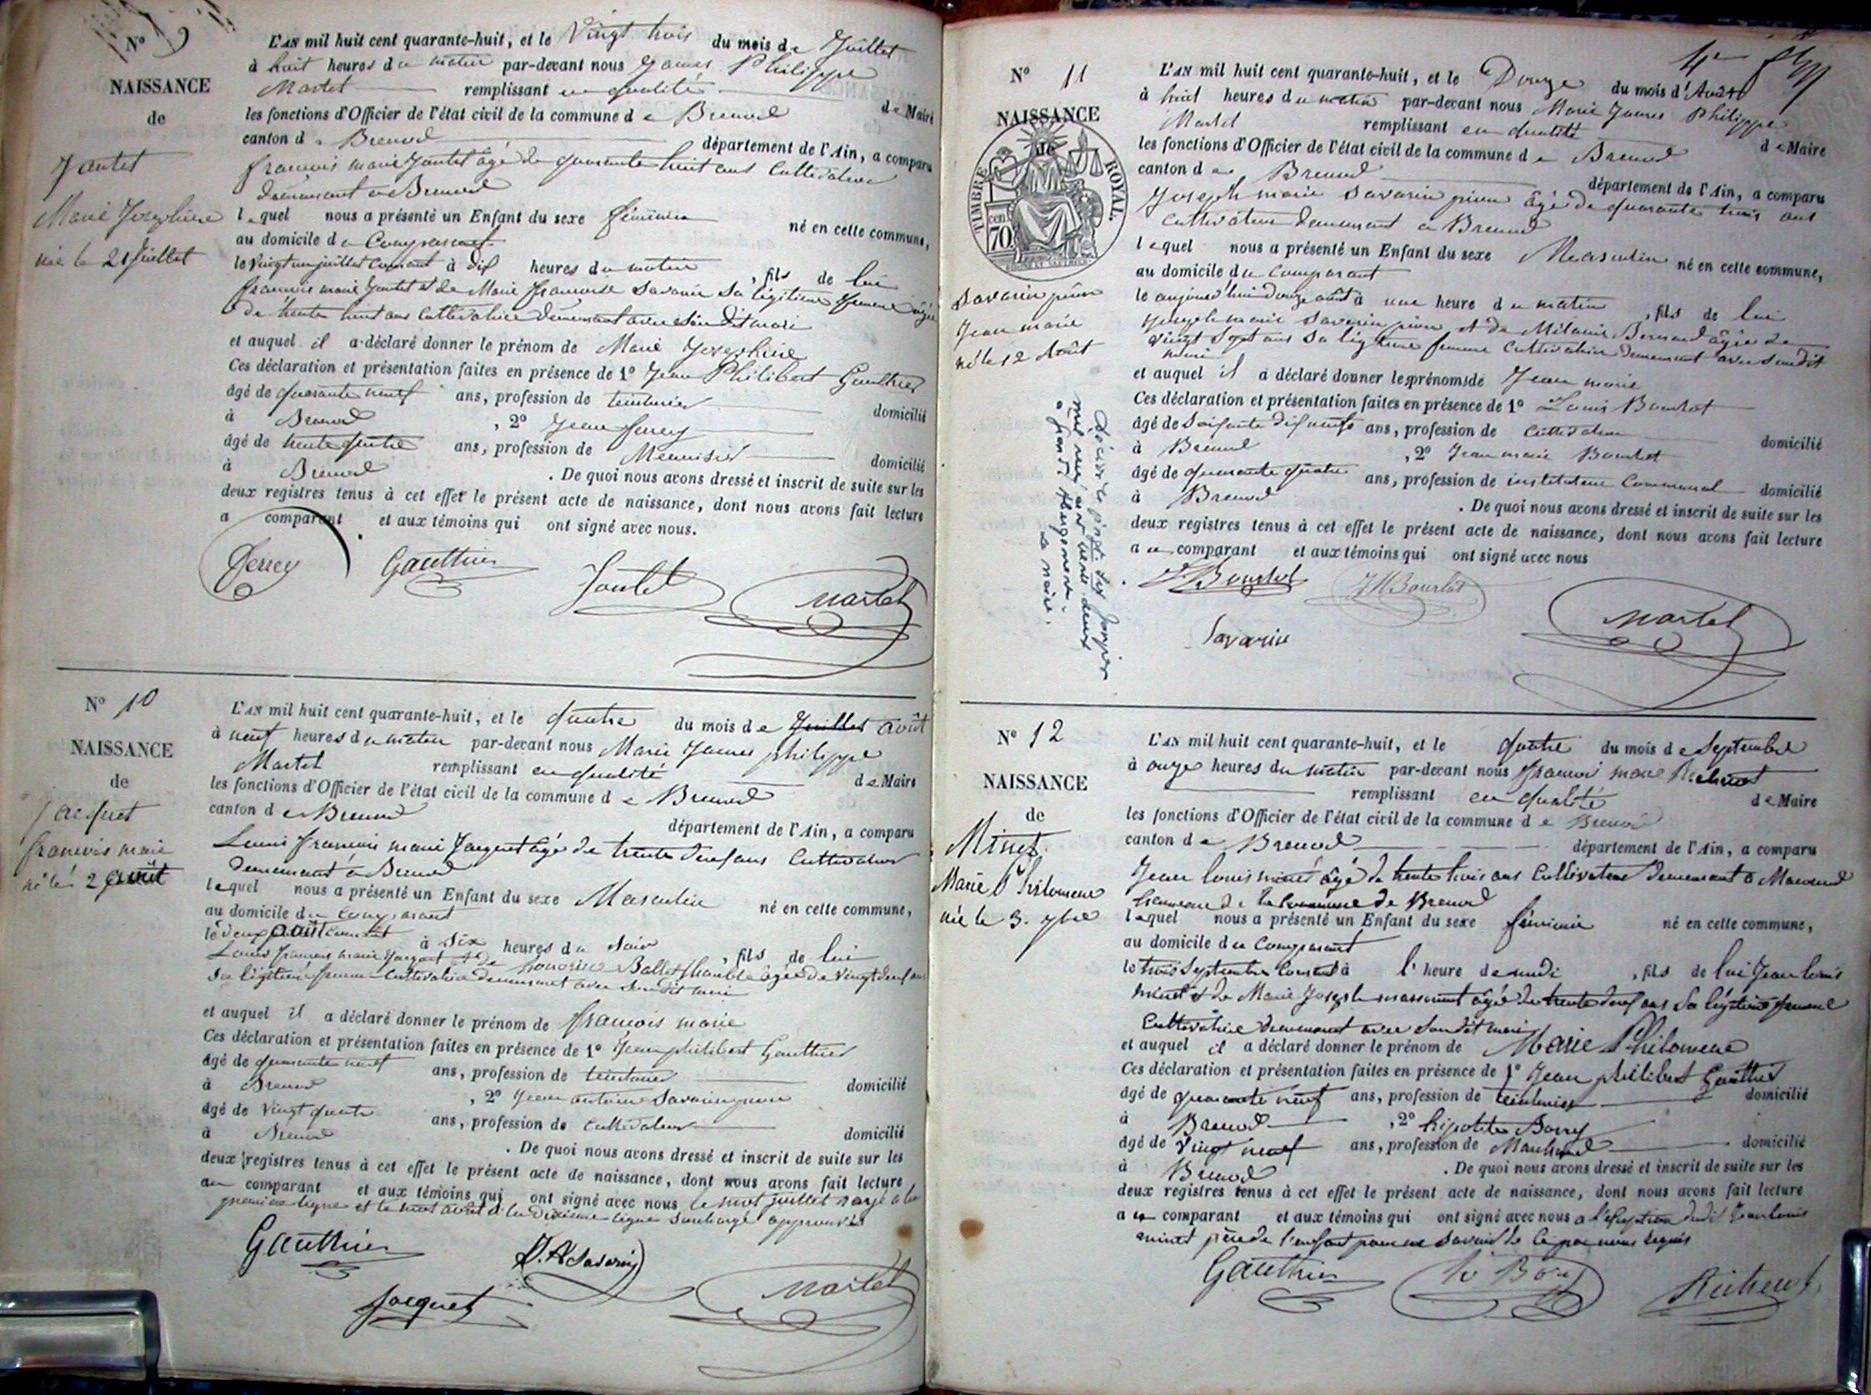 N° 9
NAISSANCE
de
Jantet
Marie Josephine
née le 21 Juillet
L'AN mil huit cent quarante-huit, et le Vingt trois du mois de Juillet
à huit heures du matin par-devant nous James Philippe
Martel remplissant en qualité de Maire
les fonctions d'Officier de l'état civil de la commune de Brenod
canton de Brenod département de l'Ain, a comparu
francois marie Jantet âgé de quarante huit ans Cultivateur
demeurant à Brenod
lequel nous a présenté un Enfant du sexe féminin né en cette commune,
au domicile du Comparant
le vingt un juillet courant à dix heures du matin , fils de lui
francois marie Jantet et de Marie francoise Savarin sa légitime femme âgée
de trente huit ans Cultivatrice demeurant avec son dit mari
et auquel il a déclaré donner le prénom de Marie Josephine
Ces déclaration et présentation faites en présence de 1° Jean Philibert Gauthier
âgé de quarante neuf ans, profession de teinturier domicilié
à Brenod , 2° Jean ferrey
âgé de trente quatre ans, profession de Menuisier domicilié
à Brenod . De quoi nous avons dressé et inscrit de suite sur les
deux registres tenus à cet effet le présent acte de naissance, dont nous avons fait lecture
a comparant et aux témoins qui ont signé avec nous.
ferrey Gauthier Jantet Martel
N° 10
NAISSANCE
de
Jacquet
francois marie
né le 2 août
L'AN mil huit cent quarante-huit, et le quatre du mois de Juillet août
à neuf heures du matin par-devant nous Marie James philippe
Martel remplissant en qualité de Maire
les fonctions d'Officier de l'état civil de la commune de Brenod
canton de Brenod département de l'Ain, a comparu
Louis francois marie Jacquet âgé de trente deux ans Cultivateur
demeurant à Brenod
lequel nous a présenté un Enfant du sexe Masculin né en cette commune,
au domicile du comparant
le deux août courant à six heures du soir , fils de lui
Louis francois marie Jacquet et de honorine Ballet âgée de vingt deux ans
sa légitime femme Cultivatrice demeurant avec son dit mari
et auquel il a déclaré donner le prénom de francois marie
Ces déclaration et présentation faites en présence de 1° Jean philibert Gauthier
âgé de quarante neuf ans, profession de teinturier domicilié
à Brenod , 2° Jean antoine Savarin
âgé de vingt quatre ans, profession de cultivateur domicilié
à Brenod . De quoi nous avons dressé et inscrit de suite sur les
deux registres tenus à cet effet le présent acte de naissance, dont nous avons fait lecture
au comparant et aux témoins qui ont signé avec nous le mot juillet rayé à la
première ligne et le mot août à la dixième ligne surchargé approuvés
Gauthier J. A Savarin
Jacquet Martel
N° 11
NAISSANCE
de
TIMBRE ROYAL.
70 cen
Savarin pion
Jean marie
né le 12 Août
L'AN mil huit cent quarante-huit, et le Douze du mois d'Août
à huit heures du matin par-devant nous Marie James Philippe
Martel remplissant en qualité de Maire
les fonctions d'Officier de l'état civil de la commune de Brenod
canton de Brenod département de l'Ain, a comparu
Joseph marie Savarin pion âgé de quarante trois ans
Cultivateur demeurant à Brenod
lequel nous a présenté un Enfant du sexe Masculin né en cette commune,
au domicile du Comparant
le aujourd'hui douze août à une heure du matin , fils de lui
Joseph marie Savarin pion et de Mélanie Bernard âgée de
vingt sept ans sa légitime femme Cultivatrice demeurant avec son dit
mari
et auquel il a déclaré donner les prénoms de Jean marie
Ces déclaration et présentation faites en présence de 1° Louis Bourbot
âgé de Soixante dix neuf ans, profession de Cultivateur domicilié
à Brenod , 2° Jean marie Bourbot
âgé de quarante quatre ans, profession de instituteur Communal domicilié
à Brenod . De quoi nous avons dressé et inscrit de suite sur les
deux registres tenus à cet effet le présent acte de naissance, dont nous avons fait lecture
au comparant et aux témoins qui ont signé avec nous
L. Bourbot J M Bourbot Martel
Savarin
Décédé le vingt six janvier
mil neuf cent trente deux
à Grand Abergement.
Le maire.
N° 12
NAISSANCE
de
Minet
Marie Philomene
née le 3. 7bre
L'AN mil huit cent quarante-huit, et le quatre du mois de Septembre
à onze heures du matin par-devant nous francois marie Richerot
remplissant en qualité de Maire
les fonctions d'Officier de l'état civil de la commune de Brenod
canton de Brenod département de l'Ain, a comparu
Jean louis minet âgé de trente trois ans Cultivateur demeurant à
hameau de la Commune de Brenod
lequel nous a présenté un Enfant du sexe féminin né en cette commune,
au domicile du Comparant
le trois Septembre Courant à l'heure de midi , fils de lui Jean louis
minet et de Marie Joseph massonnet âgée de trente deux ans Sa légitime femme
Cultivatrice demeurant avec son dit mari
et auquel il a déclaré donner le prénom de Marie Philomene
Ces déclaration et présentation faites en présence de 1° Jean philibert Gauthier
âgé de quarante neuf ans, profession de teinturier domicilié
à Brenod , 2° hipolite Borrey
âgé de Vingt neuf ans, profession de Marchand domicilié
à Brenod . De quoi nous avons dressé et inscrit de suite sur les
deux registres tenus à cet effet le présent acte de naissance, dont nous avons fait lecture
au comparant et aux témoins qui ont signé avec nous a l'exception dudit Jean louis
minet père de l'enfant pour ne savoir le ce par nous requis
Gauthier hi Borrey Richerot